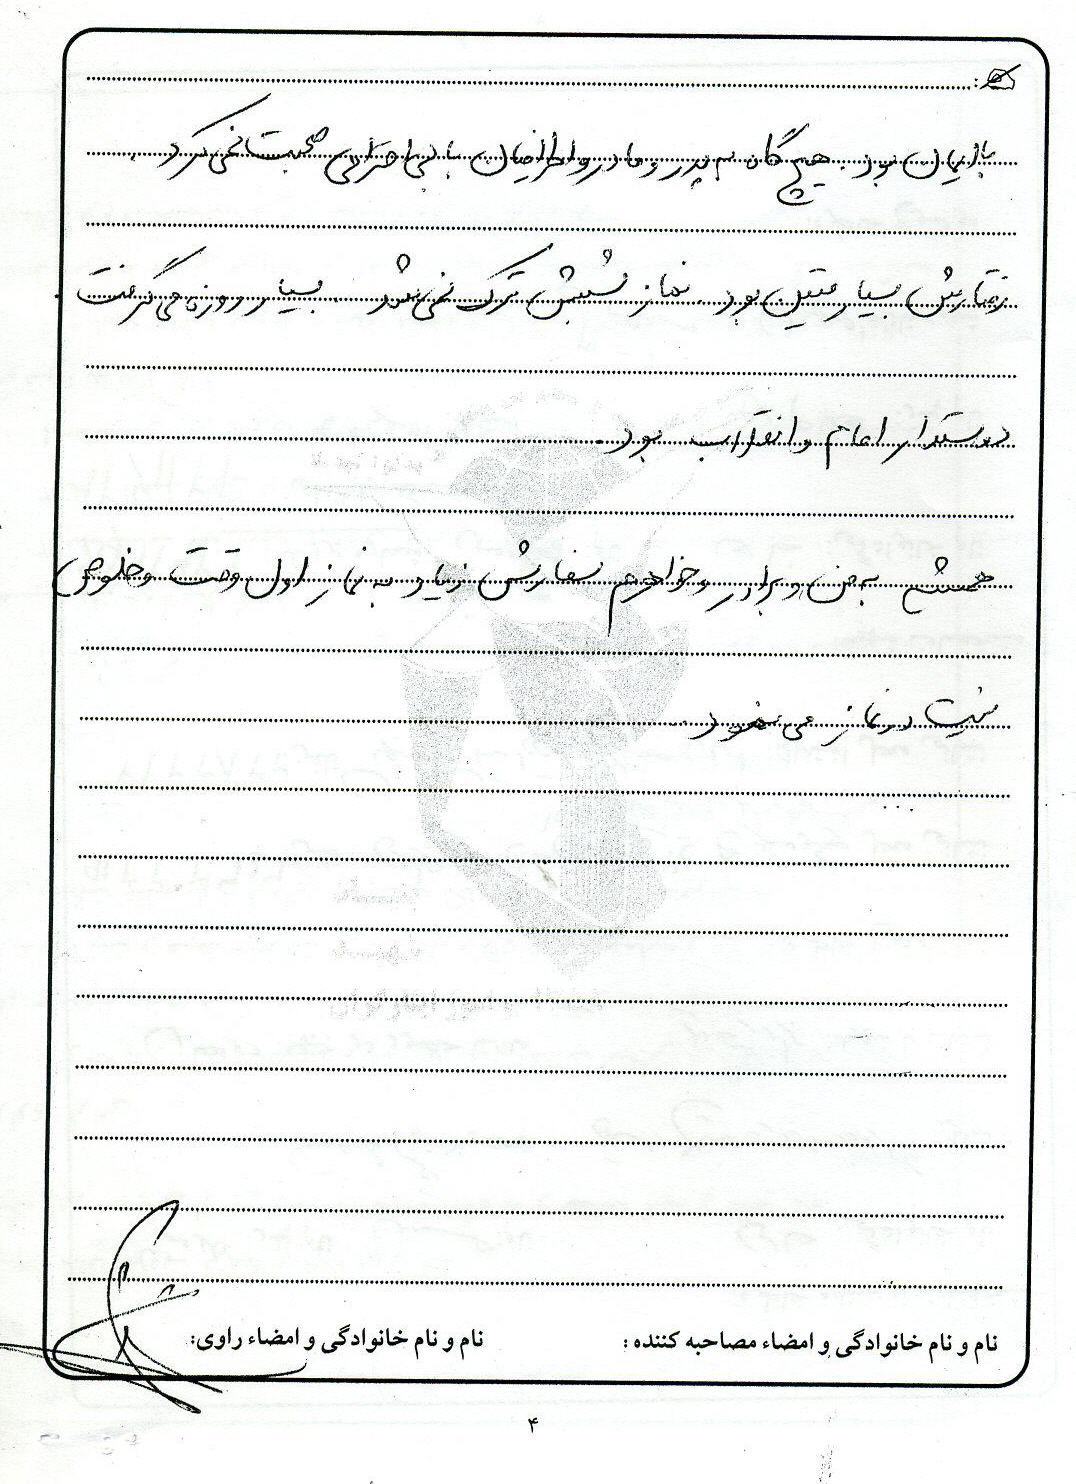 باایمان بود. هیچ گاه به پدر و مادر و اطرافیان با بی احترامی صحبت نمی کرد.
رفتارش بسیار متین بود. نماز شبش ترک نمی شد. بسیار روزه می گرفت
دوستدار امام و انقلاب بود.
همیشه به من و برادر و خواهرم سفارش زیاد به نماز اول وقت و خلوص
نیت در نماز می نمود.
نام و نام خانوادگی و امضاء مصاحبه کننده : نام و نام خانوادگی و امضاء راوی:
۴